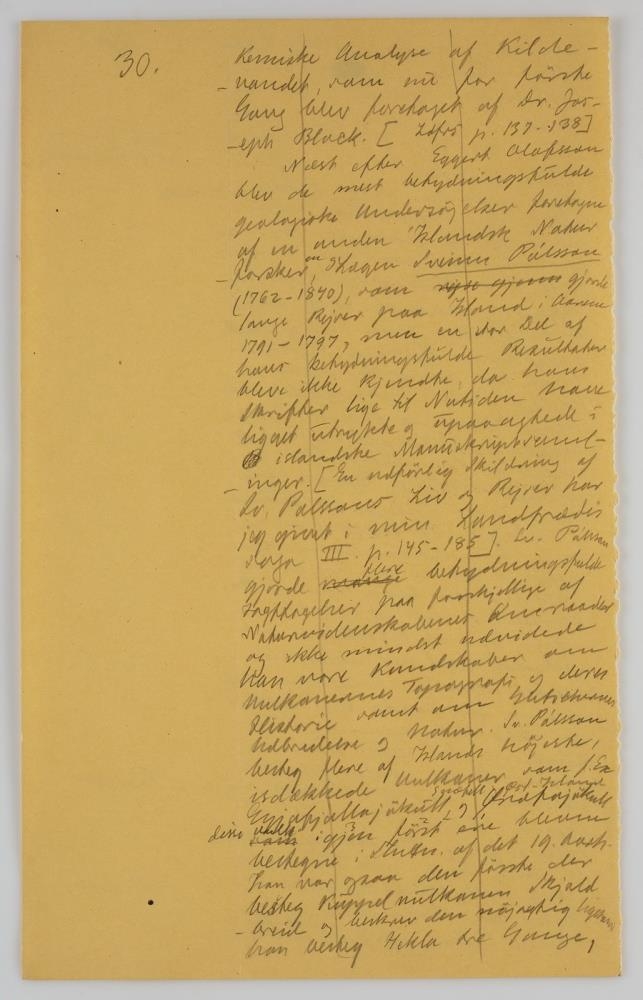 30.
kemiske Analyse af Kilde-
-vandet, som nu for første
Gang blev foretaget af Dr. Jos-
-eph Black. [ Lfrs p. 137-138]
Næst efter Eggert Olafsson
blev de mest betydningsfulde
geologiske Undersøgelser foretagne
af en anden Islandsk Natur
-forsker, Lægen Sveinn Pálsson
(1762-1840), som gjorde
lange Rejser paa Island i Aarene
1791-1797, men en stor Del af
hans betydningsfulde Resultater
bleve ikke kjendte, da hans
Skrifter lige til Nutiden have
ligget utrykte og upaaagtede i
islandske Manuskriptsaml-
-inger. [En udførlig Skildring af
Sv. Pálssons Liv og Rejser har
jeg givet i min Landfrædis
saga III. p. 145-185]. Sv. Pálsson
gjorde flere betydningsfulde
Iagttagelser paa forskjellige af
Naturvidenskabernes Omraader
og ikke mindst udvidede
han vore Kundskaber om
Vulkanernes Topografi og deres
Historie samt om Gletschernes
Udbredelse og Natur. Sv. Pálsson
besteg flere af Islands højeste,
isdækkede Vulkaner som f. Ex
Eyjafjallajökull, og Öræfajökull
disse igjen først ere blevne
bestegne i Slutn. af det 19. Aarh.
Han var ogsaa den første der
besteg Kuppelvulkanen Skjald
-breid og beskrev den nøjagtig ligesom
han besteg Hekla tre Gange,